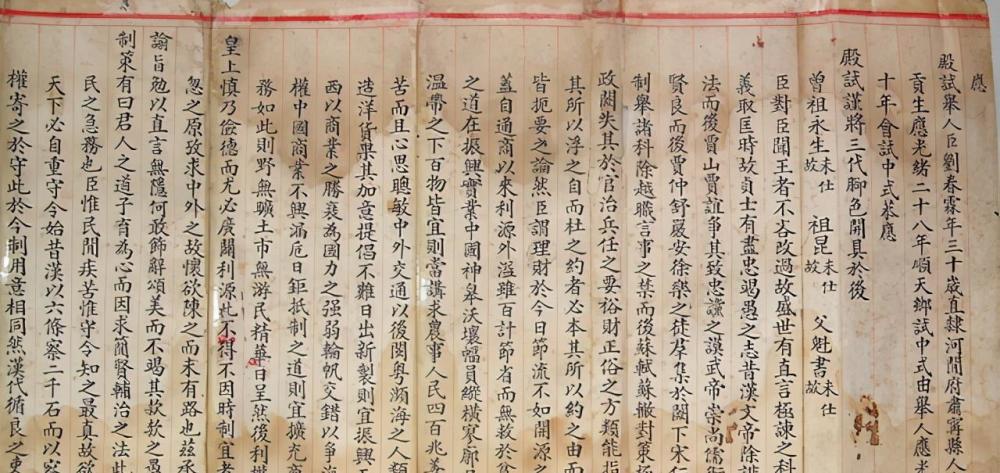 應
殿試舉人臣劉春霖年三十歲直隸河間府肅寧縣人
貢生應光緒二十八年順天鄉試中式由舉人應
十年會試中式恭應
殿試謹將三代腳色開具於後
曾祖永生未仕故 祖昆未仕故 父魁書未仕故
臣對臣聞王者不吝改過故盛世有直言極諫之科
義取匡時故貢士有盡忠竭愚之志昔漢文帝除誹
法而後賈山賈誼爭其致忠讜之謨武帝崇尚儒術
賢良而後賈仲舒嚴安徐樂之徒羣集於闕下宋仁
制舉諸科除越職言事之禁而後蘇軾蘇轍對策極
政闕失其於官治兵任之要裕財正俗之方類能指
其所以浮之自而杜之約者必本其所以約之由而
皆扼要之論然臣謂理財於今日節流不如開源之
蓋自通商以來利源外溢雖百計節省而無救於貧
之道在振興實業中國神皋沃壤幅員縱橫寥廓
溫帶之下百物皆宜則當講求農事人民四百兆善
苦而且心思聰敏中外交通以後閩粵瀕海之人類
造洋貨果其加意提倡不難日出新製則宜振興
西以商業之勝衰為國力之强弱輪帆交錯以爭海
權中國商業不興漏卮日鉅抵制之道則宜擴充商
務如此則野無曠土市無游民精華日呈然後利權
皇上慎乃儉德而尤必廣闢利源此不得不因時制宜者
忽之原攷求中外之故懷欲陳之而未有路也茲承
諭旨勉以直言無隱何敢飾辭頌美而不竭其款款之愚
制策有曰君人之道子育為心而因求簡賢輔治之法此
民之急務也臣惟民間疾苦惟守令知之最真故欲
天下必自重守令始昔漢以六條察二千石而以察
權寄之於守此於今制用意相同然漢代循良之吏